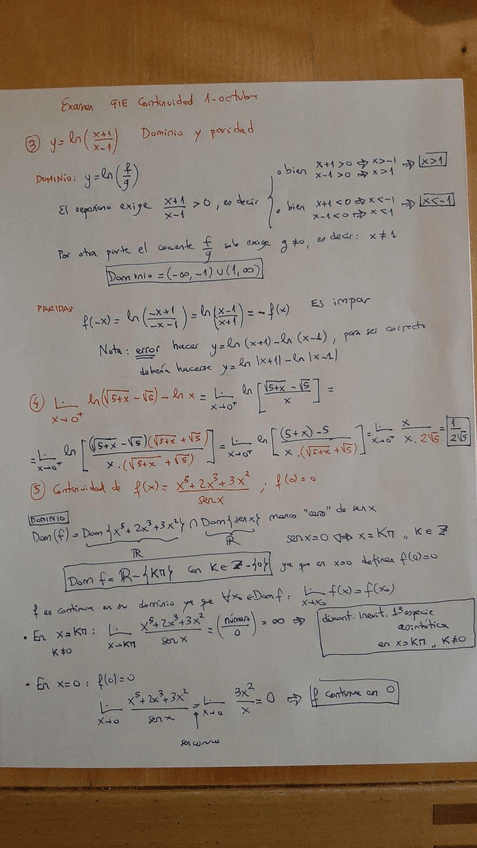 Examen 91E Continuidad 1-octubre
③ y = ln(x+1/x-1) Dominio y paridad
DOMINIO: y = ln(f/g)
o bien x+1>0 ⇒ x>-1 ⇒ x>1
x-1>0 ⇒ x>1
El neperiano exige x+1/x-1 > 0, es decir
o bien x+1<0 ⇒ x<-1 ⇒ x<-1
x-1<0 ⇒ x<1
Por otra parte el cociente f/g solo exige g≠0, es decir: x≠1
Dominio = (-∞,-1) ∪ (1,∞)
PARIDAD f(-x) = ln(-x+1/-x-1) = ln(x-1/x+1) = -f(x) Es impar
Nota: error hacer y = ln(x+1) - ln(x-1), para ser correcto
debería hacerse y = ln|x+1| - ln|x-1|
④ Lim x→0⁺ ln(√5+x - √5) - ln x = Lim x→0⁺ ln[√5+x - √5/x] =
= Lim x→0⁺ ln[(√5+x - √5)(√5+x + √5)/x·(√5+x + √5)] = Lim x→0⁺ ln[(5+x)-5/x·(√5+x + √5)] = Lim x→0⁺ x/x·2√5 = 1/2√5
⑤ Continuidad de f(x) = x⁵+2x³+3x²/sen x ; f(0)=0
DOMINIO
Dom(f) = Dom{x⁵+2x³+3x²} ∩ Dom{sen x} menos "ceros" de sen x
ℝ ℝ sen x=0 ⇔ x=Kπ, K∈ℤ
Dom f = ℝ-{Kπ} con K∈ℤ-{0} ya que en x=0 definen f(0)=0
f es continua en su dominio ya que ∀x₀∈Dom f: Lim x→x₀ f(x) = f(x₀)
• En x=Kπ: Lim x→Kπ x⁵+2x³+3x²/sen x = (número/0) = ∞ ⇒ discont. inevit. 1ª especie
K≠0 asintótica
en x=Kπ, K≠0
• En x=0: f(0)=0
Lim x→0 x⁵+2x³+3x²/sen x = Lim x→0 3x²/x = 0 ⇒ f continua en 0